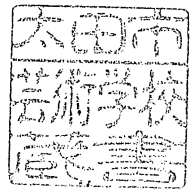 太田市
芸術学校
蔵書